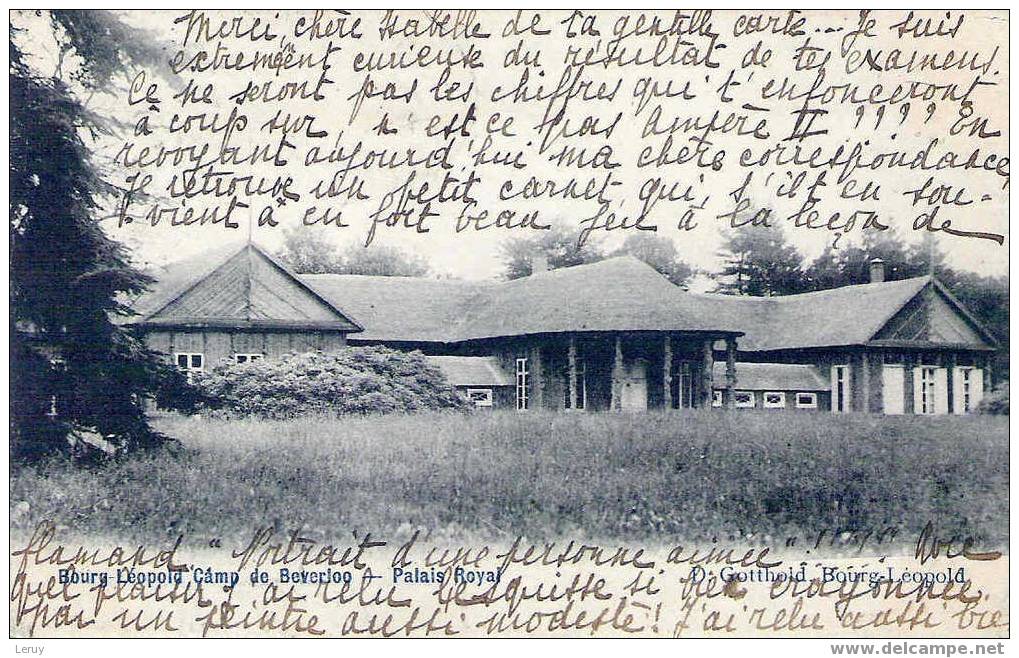 Merci, chère Isabelle de ta gentille carte... Je suis
extrêmement curieuse du résultat de tes examens.
Ce ne seront pas les chiffres qui t'enfonceront
à coup sûr, n'est ce pas Ampère II ???? En
revoyant aujourd'hui ma chère correspondance,
je retrouve un petit carnet qui, s'il t'en sou-
vient à en fort beau jeu à la leçon de
flamand, "Portrait d'une personne aimée". Avec
Bourg-Léopold Camp de Beverloo — Palais Royal
D. Gotthold, Bourg-Léopold
quel plaisir j'ai relu l'esquisse si bien crayonnée
par un peintre aussi modeste! J'ai relu aussi bie
Leruy
www.delcampe.net